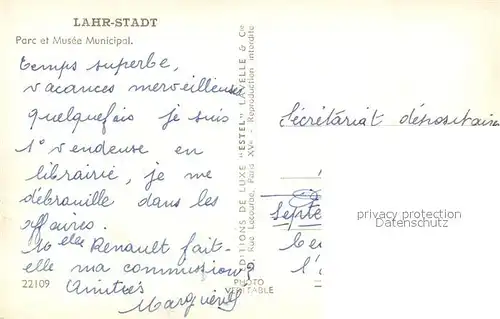 LAHR-STADT
Parc et Musée Municipal.
temps superbe,
vacances merveilleuses
quelquefois je suis
1° vendeuse en
librairie, je me
débrouille dans les
affaires.
Melle Renault fait-
elle ma commission?
Amitiés
22109
EDITIONS DE LUXE "ESTEL" LAVELLE & Cie
Rue Lecourbe, Paris XVe - Reproduction interdite
PHOTO
VÉRITABLE
Sécrétariat dépositaire
Septe
privacy protection
Datenschutz
l'